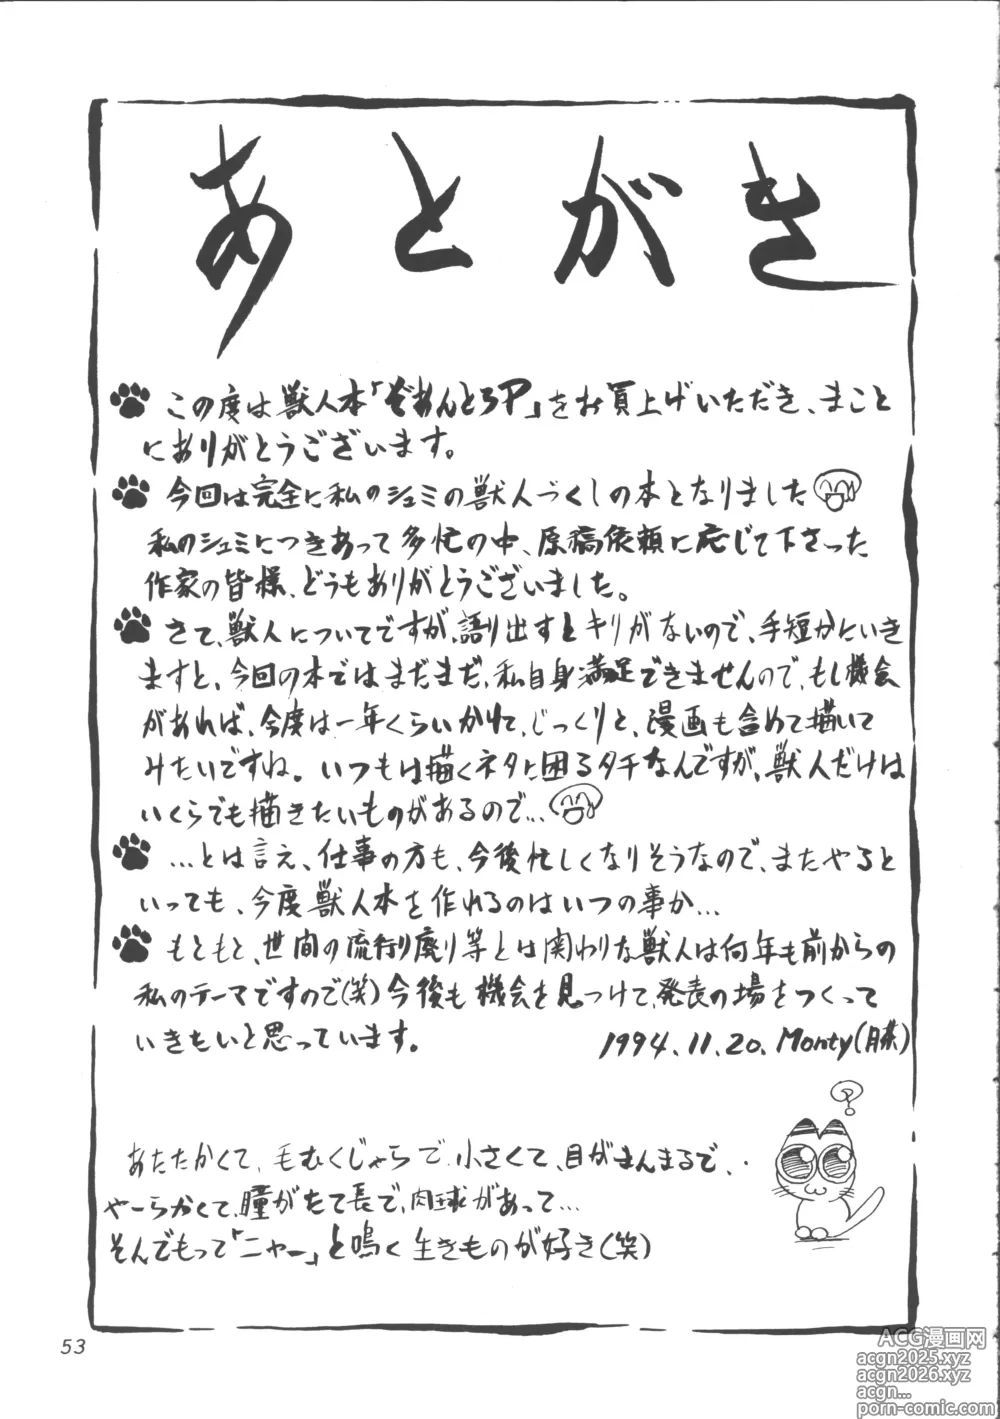 あとがき
この度は獣人本「ぞあんとろP」をお買上げいただき、まこと
にありがとうございます。
今回は完全に私のシュミの獣人づくしの本となりました
私のシュミにつきあって多忙の中、原稿依頼に応じて下さった
作家の皆様、どうもありがとうございました。
さて、獣人についてですが、語り出すとキリがないので、手短かにいき
ますと、今回の本ではまだまだ、私自身満足できませんので、もし機会
があれば、今度は一年くらいかけて、じっくりと、漫画も含めて描いて
みたいですね。いつもは描くネタに困るタチなんですが、獣人だけは
いくらでも描きたいものがあるので…
…とは言え、仕事の方も、今後忙しくなりそうなので、またやると
いっても、今度獣人本を作れるのはいつの事か…
もともと、世間の流行り廃り等とは関わりな獣人は何年も前からの
私のテーマですので(笑)今後も機会を見つけて、発表の場をつくって
いきたいと思っています。
1994.11.20. Monty
あたたかくて、毛むくじゃらで小さくて、目がまんまるで、
やーらかくて、瞳がたて長で、肉球があって…
そんでもって「ニャー」と鳴く生きものが好き(笑)
?
53
ACG漫画网
acgn2025.xyz
acgn2026.xyz
acgn...
porn-comic.com